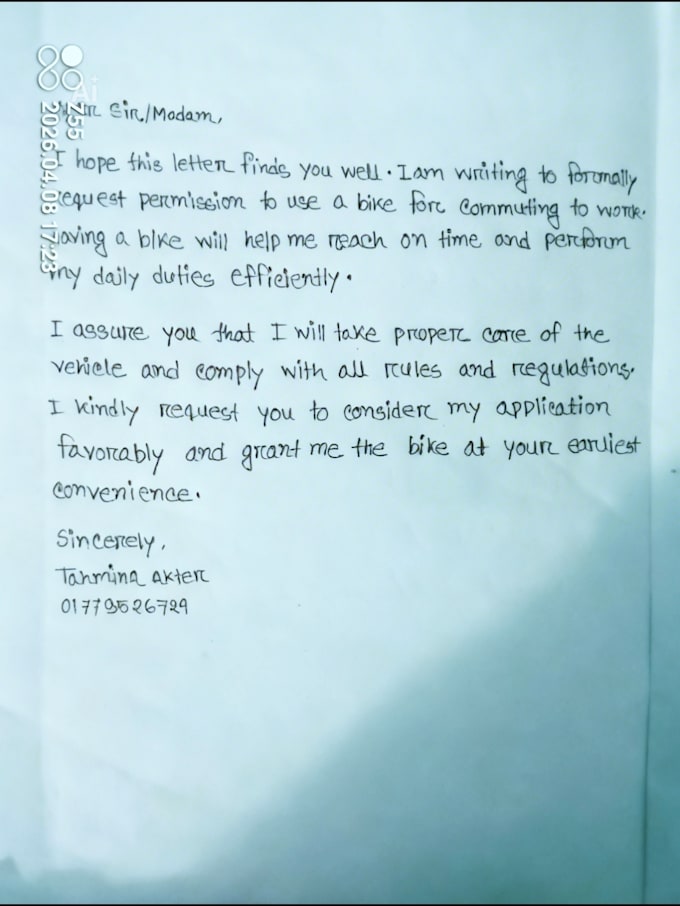 Dear Sir/Madam,
I hope this letter finds you well. I am writing to formally
request permission to use a bike for commuting to work.
Having a bike will help me reach on time and perform
my daily duties efficiently.
I assure you that I will take proper care of the
vehicle and comply with all rules and regulations.
I kindly request you to consider my application
favorably and grant me the bike at your earliest
convenience.
Sincerely,
Tahmina Akter
01779526729
Z55
2026.04.08 17:23
Ai